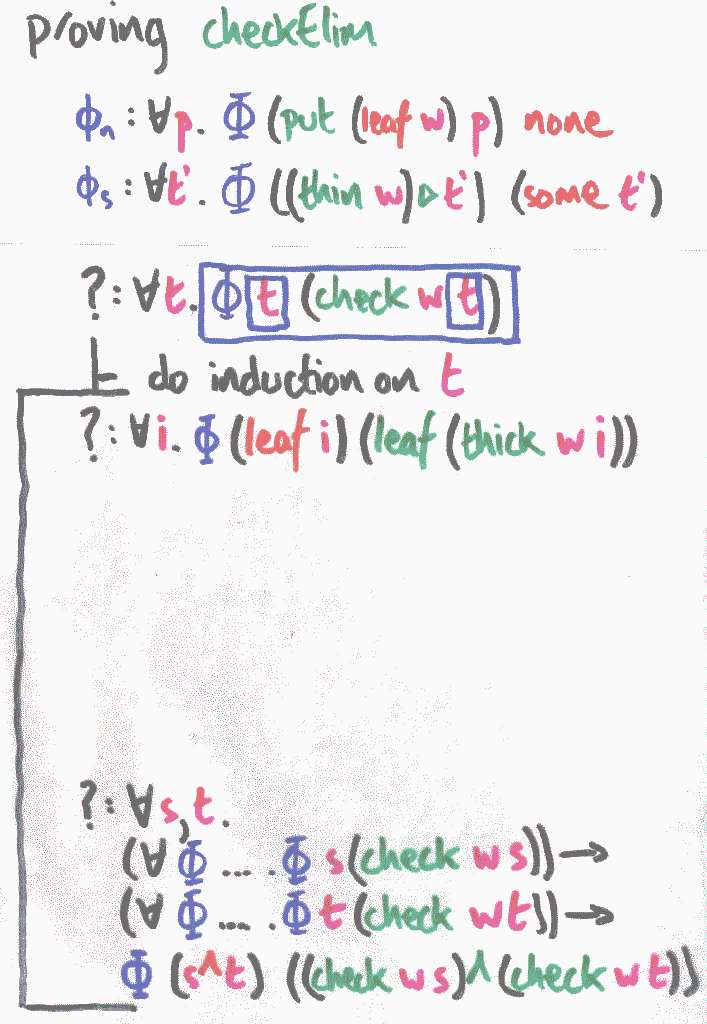 proving checkElim
ϕₙ : ∀p. Φ (put (leaf w) p) none
ϕₛ : ∀t'. Φ ((thin w)▹t') (some t')
?: ∀t. Φ t (check w t)
⊢ do induction on t
?: ∀i. Φ (leaf i) (leaf (thick w i))
?: ∀s,t.
(∀ Φ ... . Φ s(check w s)) →
(∀ Φ .... . Φ t (check w t)) →
Φ (s^t) ((check w s)^(check w t))